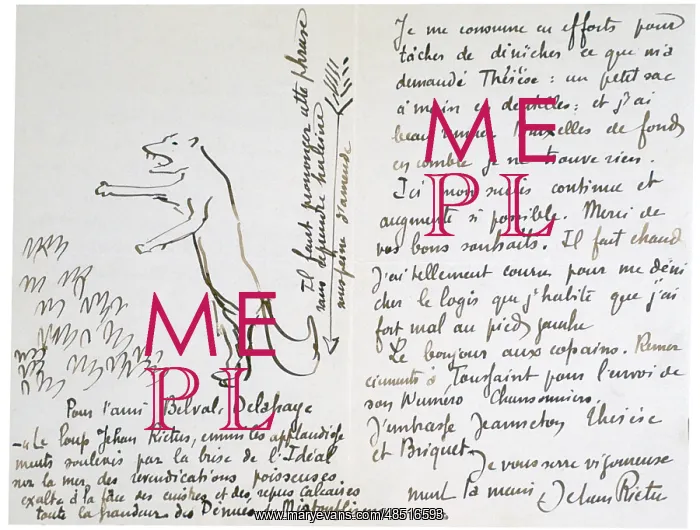 Il faut prononcer cette phrase
sans reprendre haleine
sous peine d'amende
Pour l'ami Belval-Delahaye
— "Le Loup Jehan Rictus, emmi les applaudisse
ments soulevés par la brise de l'Idéal
sur la mer des revendications poisseuses
exalte à la face des cuistres et des repus Calcaires
toute la grandeur des Dénués
Je me consume en efforts pour
tâcher de dénicher ce que m'a
demandé Thérèse : un petit sac
à main en dentelles ; et j'ai
beau Bruxelles de fond
en comble je ne trouve rien.
Ici mon succès continue et
augmente si possible. Merci de
vos bons souhaits. Il fait chaud
J'ai tellement couru pour me déni
cher le logis que j'habite que j'ai
fort mal au pied gauche
Le bonjour aux copains. Remer
ciements à Toussaint pour l'envoi de
son Numéro Chansonniers.
J'embrasse Jeanneton Thérèse
et Briquet
Je vous serre vigoureuse
ment la main Jehan Rictus
ME
PL
ME
PL
www.maryevans.com/48516593